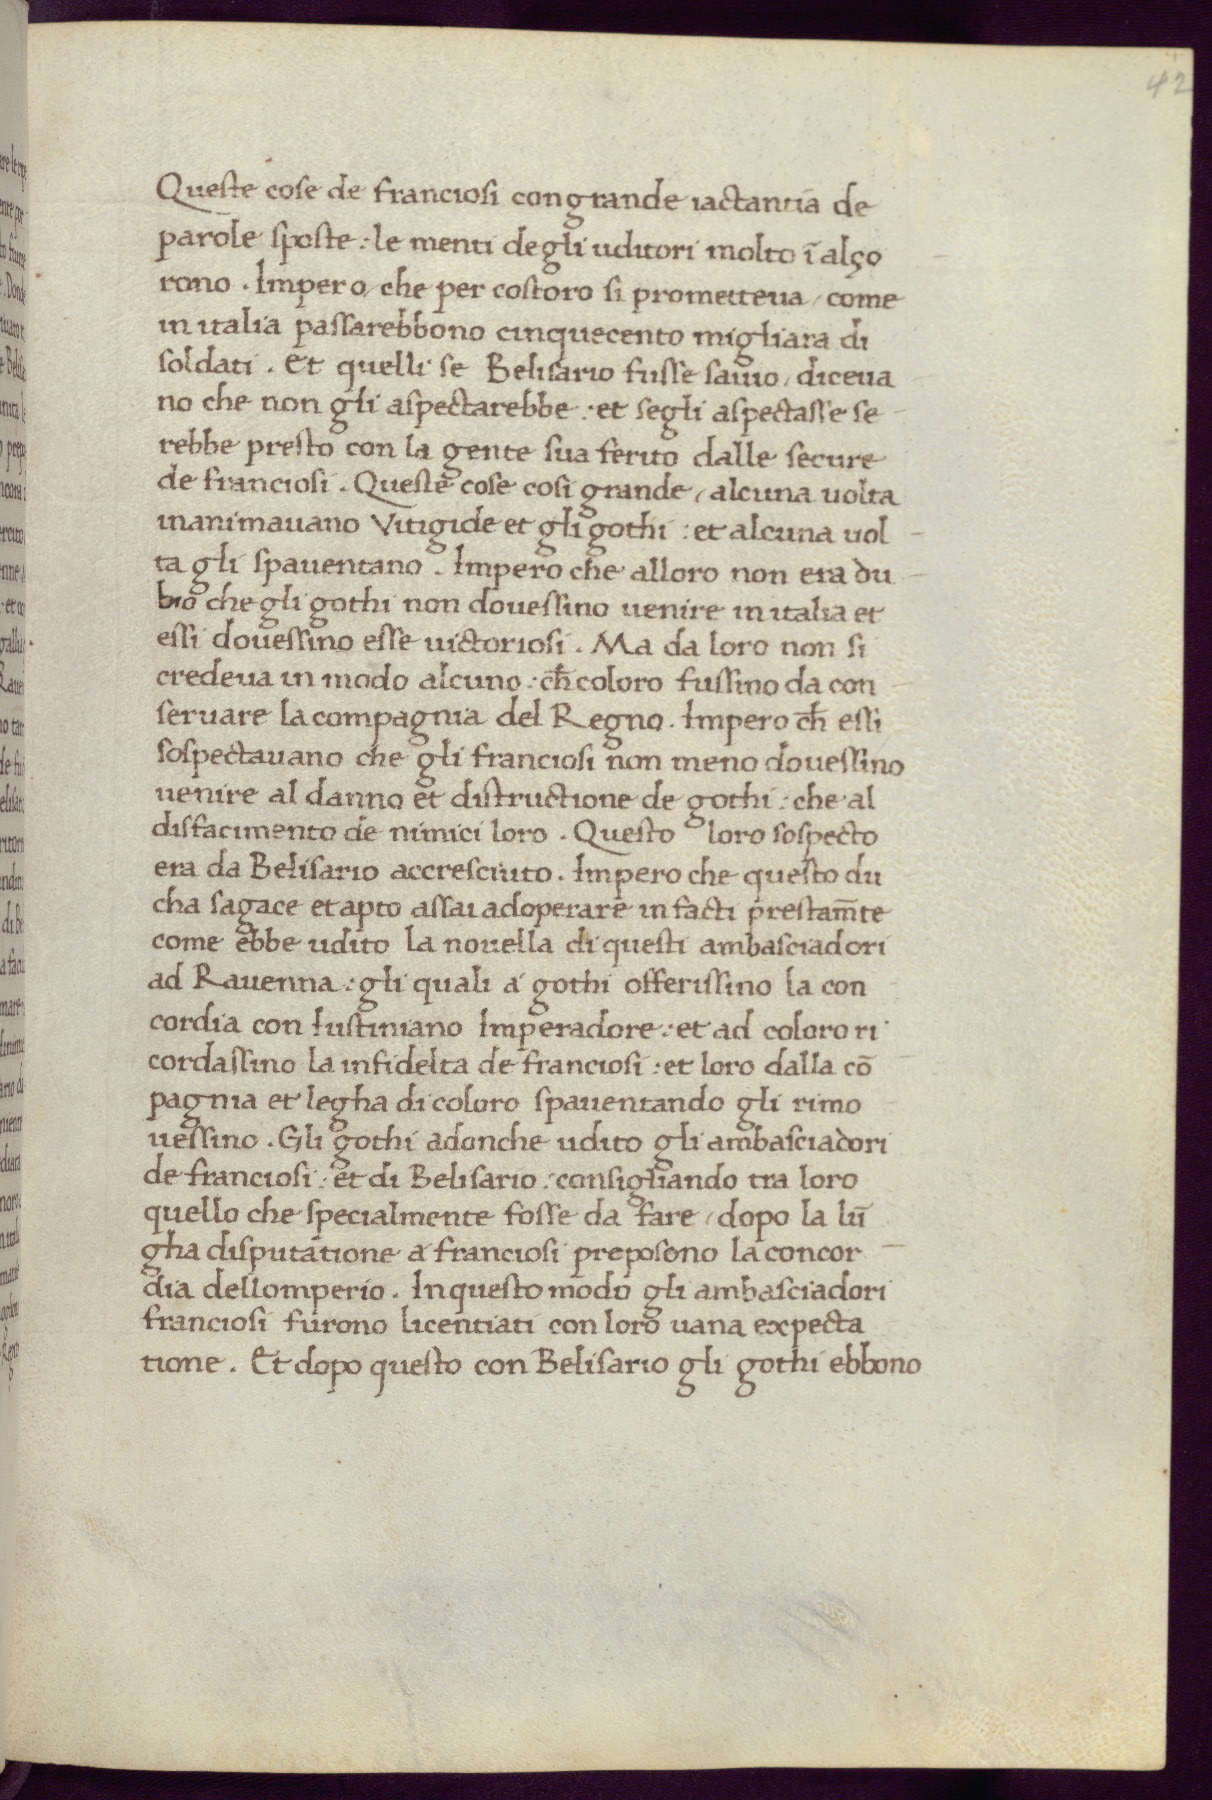 42
Queste cose de franciosi con grande iactantia de
parole sposte : le menti degli uditori molto ī alço
rono . Impero / che per costoro si prometteua / come
in italia passarebbono cinquecento migliara di
soldati . Et quelli se Belisario fusse sauio / diceua
no che non gli aspectarebbe : et segli aspectasse se
rebbe presto con la gente sua ferito dalle secure
de franciosi . Queste cose cosi grande / alcuna uolta
inanimauano Vitigide et gli gothi : et alcuna uol
ta gli spauentano . Impero che alloro non era du
bio che gli gothi non douessino uenire in italia et
essi douessino esse uictoriosi . Ma da loro non si
credeua in modo alcuno : ch̄ coloro fussino da con
seruare la compagnia del Regno . Impero ch̄ essi
sospectauano che gli franciosi non meno douessino
uenire al danno et distructione de gothi : che al
disfacimento de nimici loro . Questo loro sospecto
era da Belisario accresciuto . Impero che questo du
cha sagace et apto assai adoperare in facti prestam̄te
come ebbe udito la nouella di questi ambasciadori
ad Rauenna : gli quali a gothi offerissino la con
cordia con Iustiniano Imperadore : et ad coloro ri
cordassino la infidelta de franciosi : et loro dalla cō
pagnia et legha di coloro spauentando gli rimo
uessino . Gli gothi adonche udito gli ambasciadori
de franciosi : et di Belisario : consigliando tra loro
quello che specialmente fosse da fare / dopo la lū
gha disputatione a franciosi preposono la concor
dia dellomperio . In questo modo gli ambasciadori
franciosi furono licentiati con loro uana expecta
tione . Et dopo questo con Belisario gli gothi ebbono